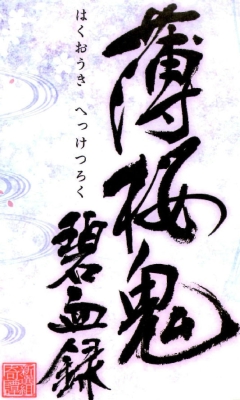 薄桜鬼
はくおうき へっけつろく
碧血録